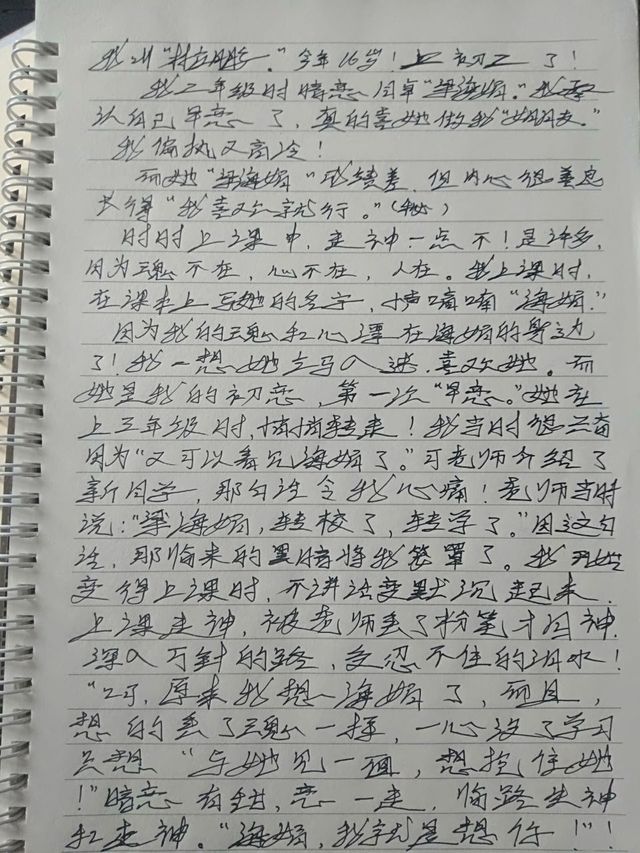 我叫"林立朋." 今年16岁! 上初二了!
我二年级时暗恋同卓"梁海娟." 我承
认自己早恋了, 真的喜她做我"女朋友."
我偏执又高冷!
而她"梁海娟"成绩差, 但内心很善良
长得"我喜欢就行。"
时时上课中, 走神一点不!是许多,
因为魂不在, 心不在, 人在。我上课时,
在课本上写她的名字, 喃喃"海娟."
因为我的魂和心漂在海娟的身边
了! 我一想她立马入迷. 喜欢她。而
她是我的初恋, 第一次"早恋。"她在
上三年级时, 悄悄转走! 我当时很兴奋
因为"又可以看见海娟了。"可老师介绍了
新同学, 那句话令我心痛! 老师当时
说:"梁海娟, 转校了, 转学了。"因这句
话, 那临来的黑暗将我笼罩了。我开始
变得上课时, 不讲话变默沉起来.
上课走神, 被老师丢了粉笔才回神.
深入万针的路, 交忍不住的泪水!
", 原来我想海娟了, 而且,
想的丢了魂一样, 一心没了学习
只想"与她见一面, 想抱住她
!" 暗恋有错, 恋一走, 临路失神
和走神。"海娟, 我就是想你!"!